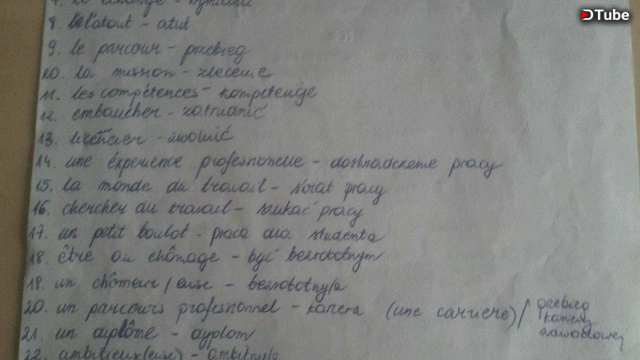 DTube
8. l'atout - atut
9. le parcour - przebieg
10. la mission - zlecenie
11. les compétences - kompetencje
12. embaucher - zatrudnić
13. licencier - zwolnić
14. une éxperience professionelle - doświadczenie pracy
15. la monde du travail - świat pracy
16. chercher du travail - szukać pracy
17. un petit boulot - praca dla studenta
18. être au chômage - być bezrobotnym
19. un chômeur/euse - bezrobotny/a
20. un parcours professionnel - kariera (une carrière)/ przebieg
kariery
zawodowej
21. un diplôme - dyplom
22. ambitieux(euse) - ambitny/a